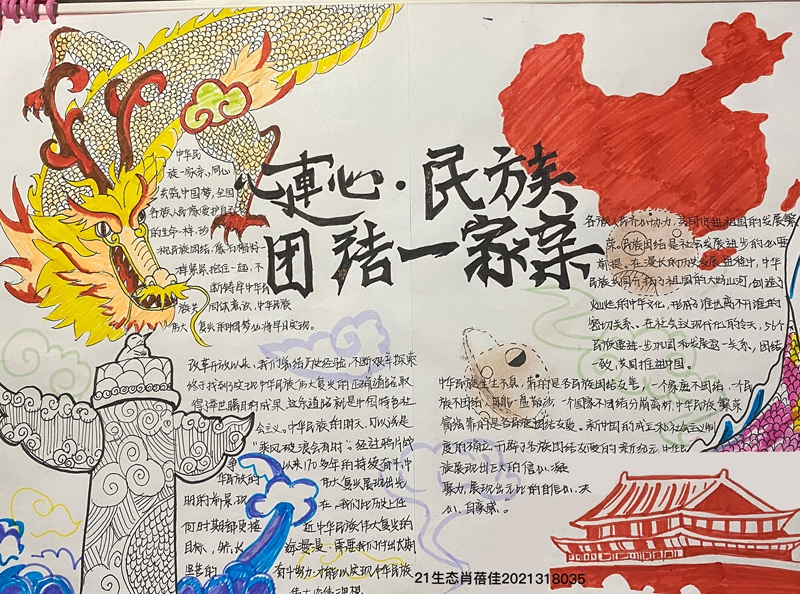 心連心·民族
团结一家亲
中华民
族一家亲，同心
共筑中国梦，全国
各族人民像爱护自己
的生命一样，珍
视民族团结，像石榴籽一
样紧紧抱住一起，不
断铸牢中华民
族共同体意识，中华民族
伟大复兴的中国梦必将早日实现。
改革开放以来，我们总结历史经验，不断艰辛探索
终于找到了实现中华民族伟大复兴的正确道路，取
得了举世瞩目的成果，这条道路就是中国特色社
会主义。中华民族的明天，可以说是
“乘风破浪会有时”。经过鸦片战
争以来170多年的持续奋斗，中
华民族的伟大复兴展现出光
明的前景，现在，我们比历史上任
何时期都更接近中华民族伟大复兴的
目标，
有中努力才能以实现中华民族
伟大复兴理想。
各族人民齐心协力，共同促进祖国的发展繁
荣。民族团结是社会发展进步的必要
前提。在漫长的历史发展进程中，中华
民族共同分布了祖国的大好山河，创造了
灿烂的中华文化，形成了谁也离不开谁的
密切关系。在社会主义现代化的今天，51个
民族要进一步巩固和发展这一关系，团结
一致，共同推进中国。
中华民族生生不息，靠的是各民族团结友爱，一个家庭不团结，一个民
族不团结，只能一盘散沙，一个国家不团结分崩离析，中华民族繁荣
富强靠的是各民族团结友爱。新中国的成立和社会主义制
度的确立，开辟了各族团结友爱的新纪元，中华民
族展现出巨大的自信心、凝
聚力，展现出无比的自信心、决
心、自豪感。
21生态肖蓓佳2021318035